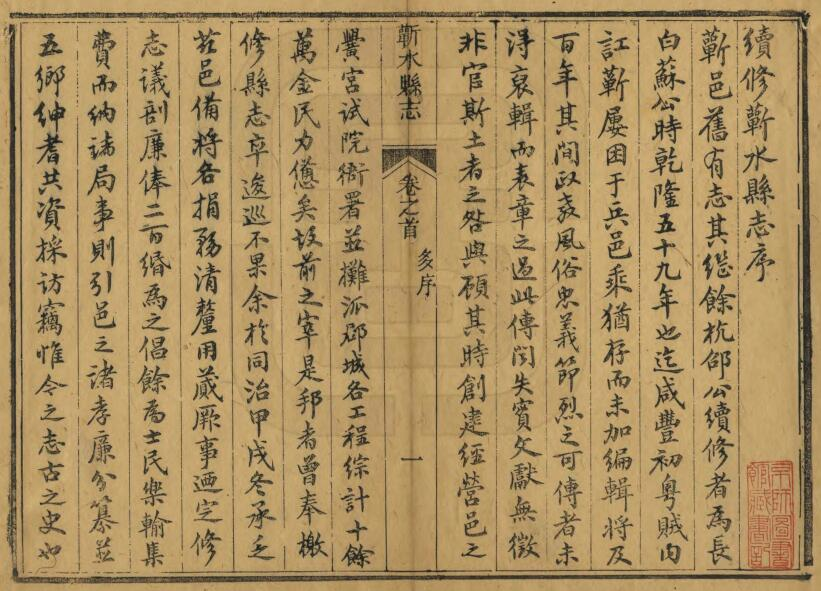 續修蘄水縣志序
蘄邑舊有志其繼餘杭邵公續修者為長
白蘇公時乾隆五十九年也迄咸豐初粵賊內
訌蘄屢困于兵邑乘猶存而未加編輯將及
百年其間政教風俗忠義節烈之可傳者未
得裒輯而表章之過此傳聞失實文獻無徵
非官斯土者之咎與顧其時創建經營邑之
蘄水縣志
卷之首
多序
一
黌宮試院衙署並攤派郡城各工程綜計十餘
萬金民力憊矣故前之宰是邦者曾奉檄
修縣志卒逡巡不果余於同治甲戌冬承乏
茲邑備將各捐務清釐用蕆厥事迺定修
志議剖廉俸二百緡為之倡餘為士民樂輸集
費而納諸局事則引邑之諸孝廉分纂並
五鄉紳耆共資採訪竊惟今之志古之史也
京師圖書
館藏書記